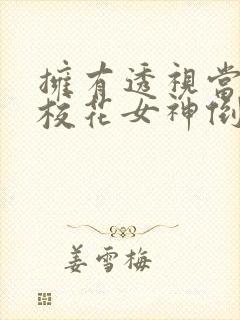 擁有透視當
校花女神倒
姜雪梅